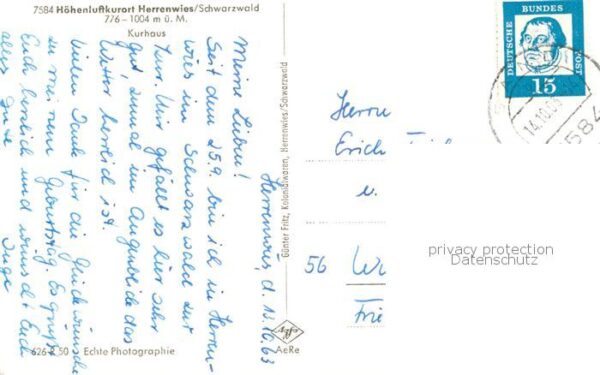 7584 Höhenluftkurort Herrenwies/Schwarzwald
776 – 1004 m ü. M.
Kurhaus
Herrenwies, d. 13.10.63
Meine Lieben!
Seit dem 25.9. bin ich in Herren-
wies im Schwarzwald zur
Kur. Mir gefällt es hier sehr
gut, zumal im Augenblick das
Wetter herrlich ist.
Vielen Dank für die Glückwünsche
zu meinem Geburtstag. Es grüßt
Euch herzlich und wünscht Euch
alles Gute
Inge
626 R 50 Echte Photographie
Günter Fritz, Kolonialwaren, Herrenwies/Schwarzwald
Agfa
AeRe
DEUTSCHE
BUNDES
POST
15
14.10.63
7584
Herrn
Erich
u.
56
privacy protection
Datenschutz